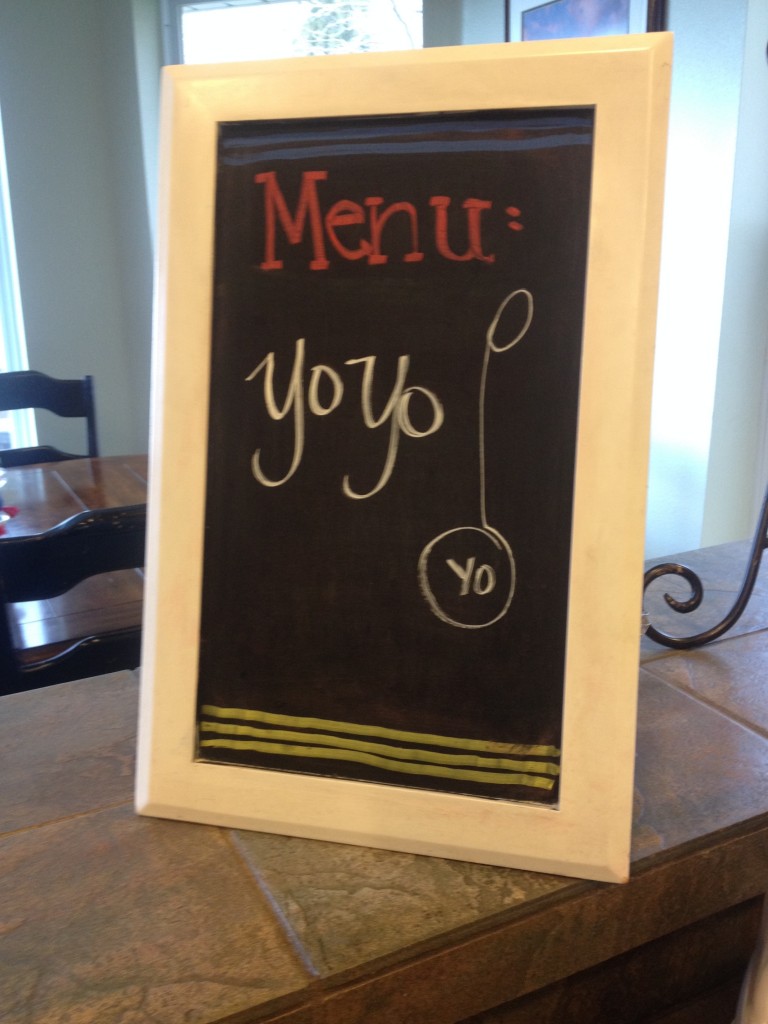 Menu:
yoyo
yo